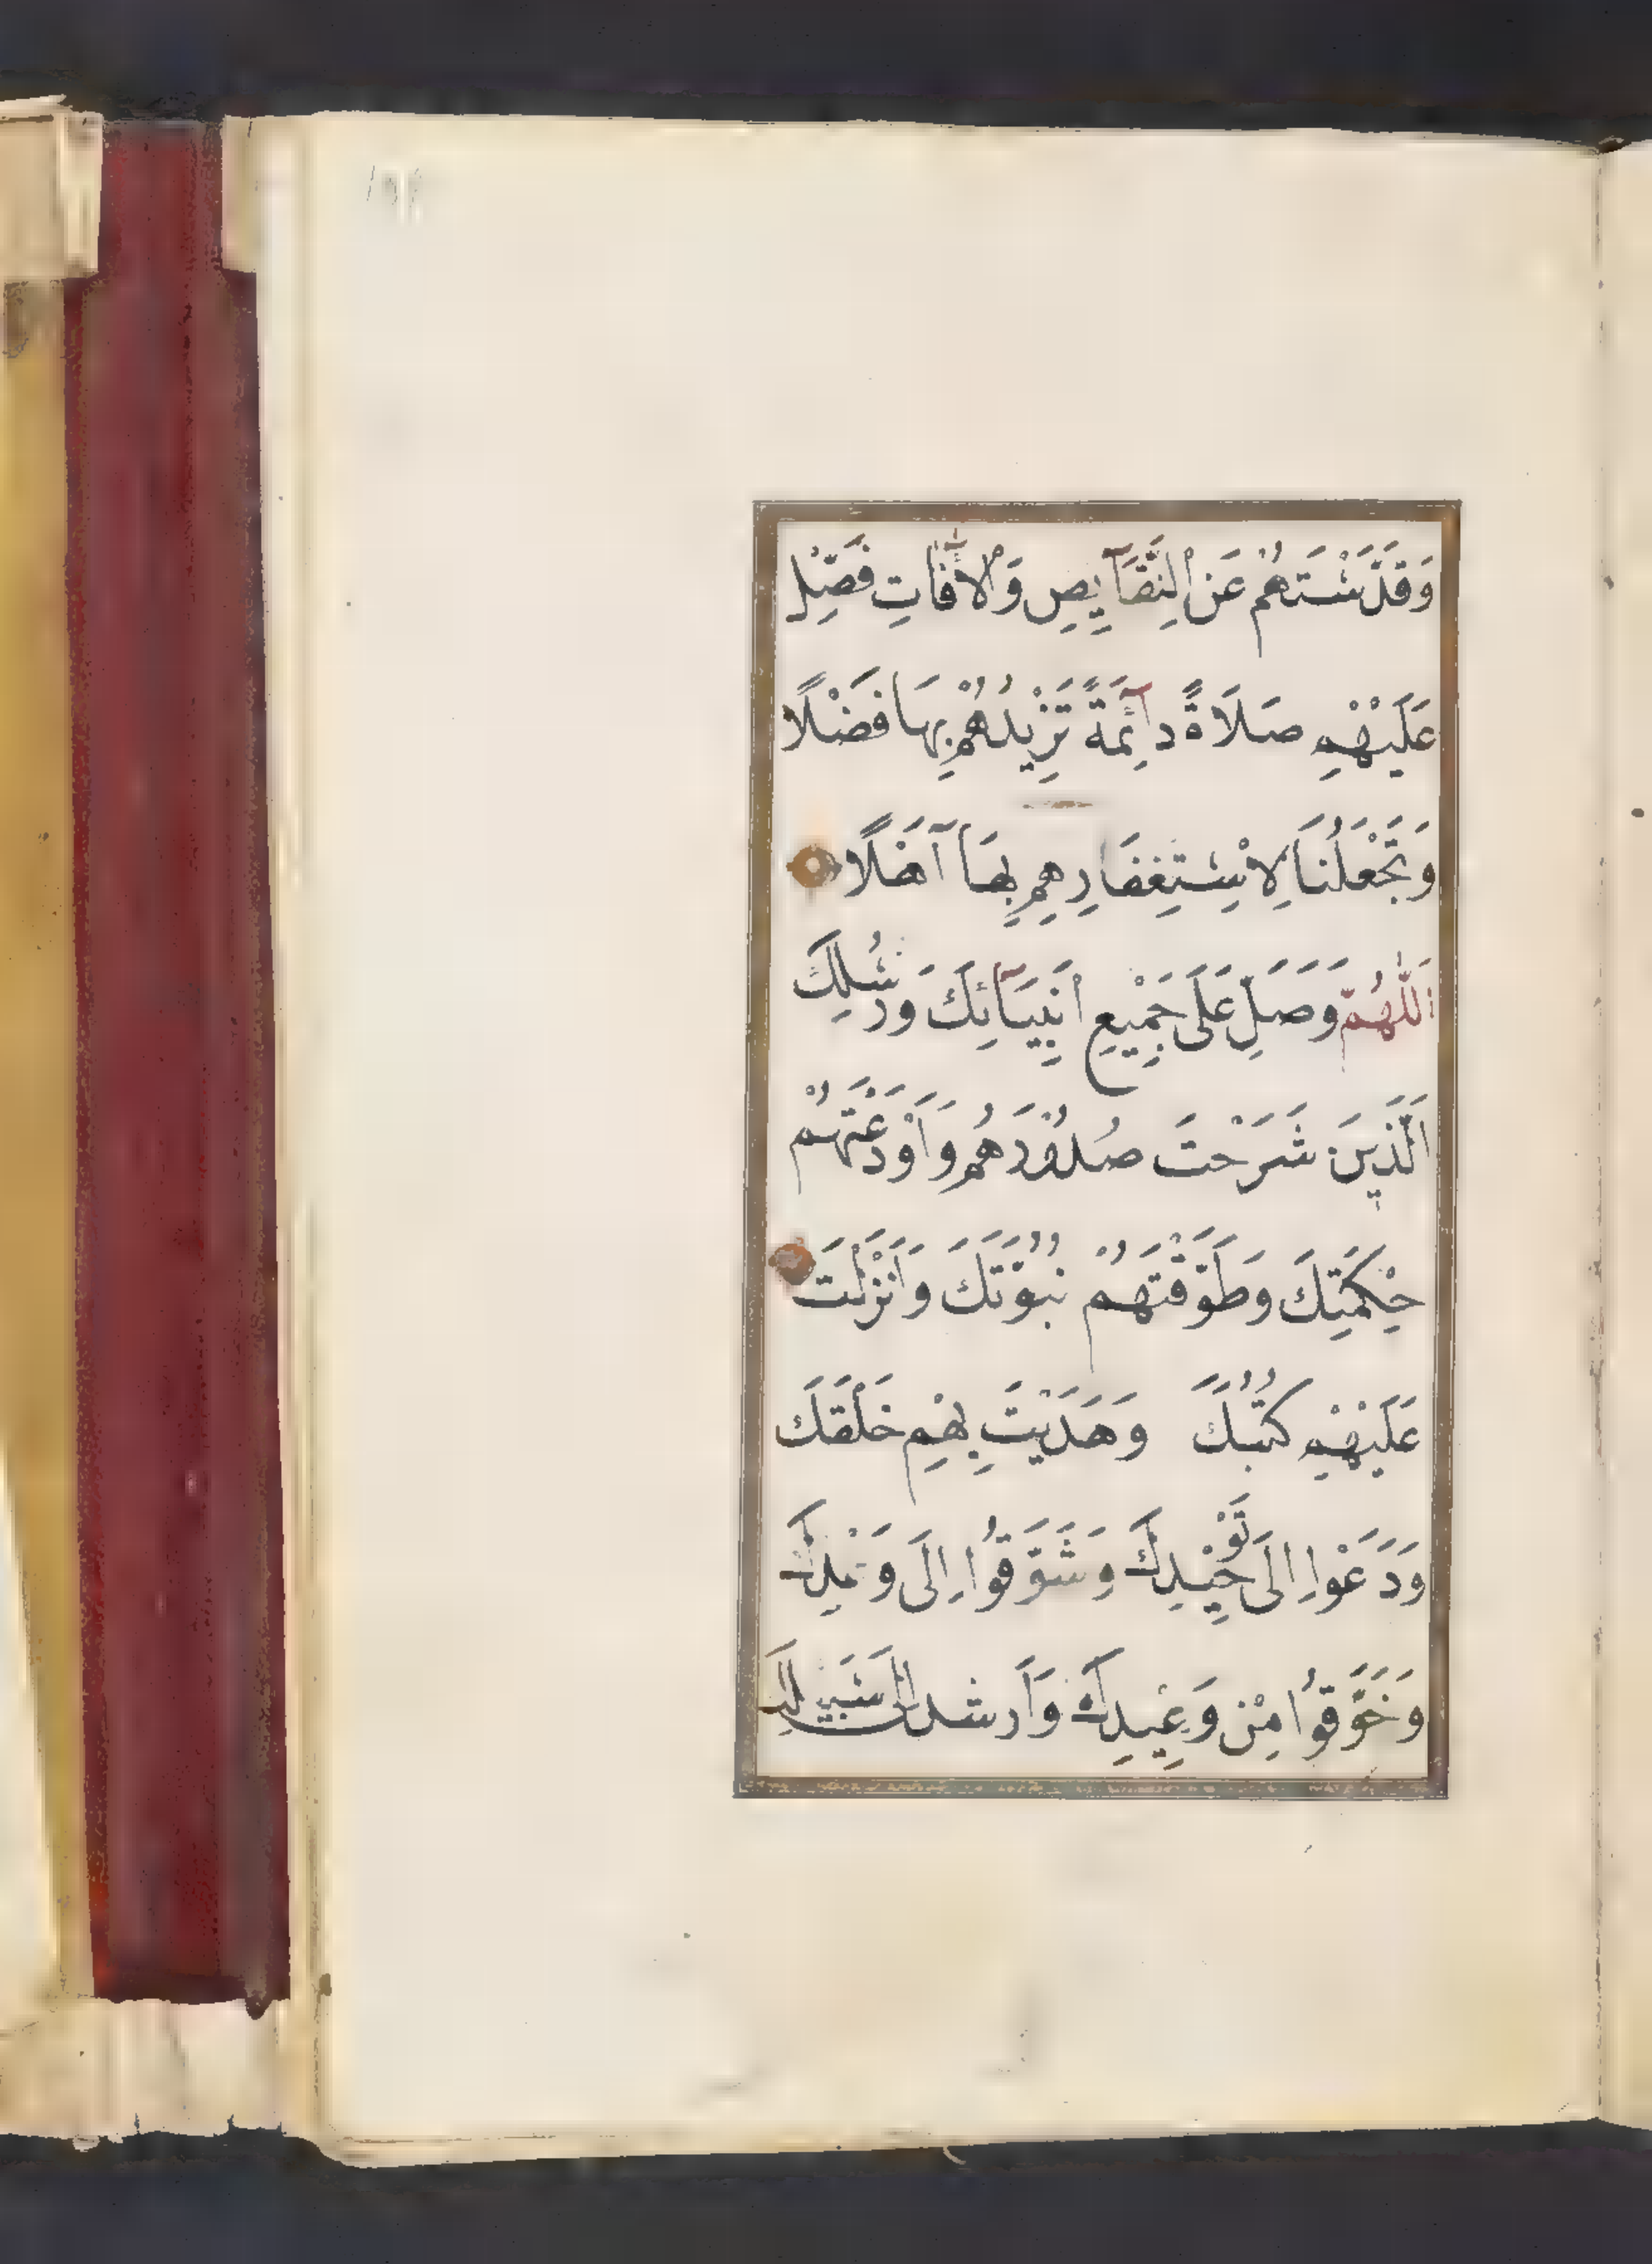 وَقَدَّسْتَهُمْ عَنِ النَّقَآيِصِ وَالْاٰفَاتِ فَصَلِّ
عَلَيْهِمْ صَلَاةً دَآئِمَةً تَزِيْدُهُمْ بِهَا فَضْلًا
وَتَجْعَلُنَا لِاسْتِغْفَارِهِمْ بِهَآ اَهْلًا
اَللّٰهُمَّ وَصَلِّ عَلَى جَمِيْعِ اَنْبِيَآئِكَ وَرُسُلِكَ
الَّذِينَ شَرَحْتَ صُدُوْرَهُمْ وَاَوْدَعْتَهُمْ
حِكْمَتَكَ وَطَوَّقْتَهُمْ نُبُوَّتَكَ وَاَنْزَلْتَ
عَلَيْهِمْ كُتُبَكَ وَهَدَيْتَ بِهِمْ خَلْقَكَ
وَدَعَوْا اِلَى تَوْحِيْدِكَ وَشَوَّقُوْا اِلَى وَعْدِكَ
وَخَوَّفُوْا مِنْ وَعِيْدِكَ وَاَرْشَدُوْا اِلَى سَبِيْلِكَ